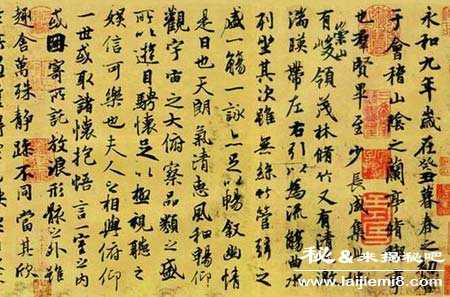 永和九年歲在癸丑暮春之初
于會稽山陰之蘭亭脩禊事
也群賢畢至少長咸集
有崇山峻領茂林脩竹又有清流激
湍暎帶左右引以為流觴曲水
列坐其次雖無絲竹管弦之
盛一觴一詠亦足以暢敘幽情
是日也天朗氣清惠風和暢仰
觀宇宙之大俯察品類之盛
所以遊目騁懷足以極視聽之
娛信可樂也夫人之相與俯仰
一世或取諸懷抱悟言一室之內
或因寄所託放浪形骸之外雖
趣舍萬殊靜躁不同當其欣
秘&来揭秘吧
www.laijiemi8.com